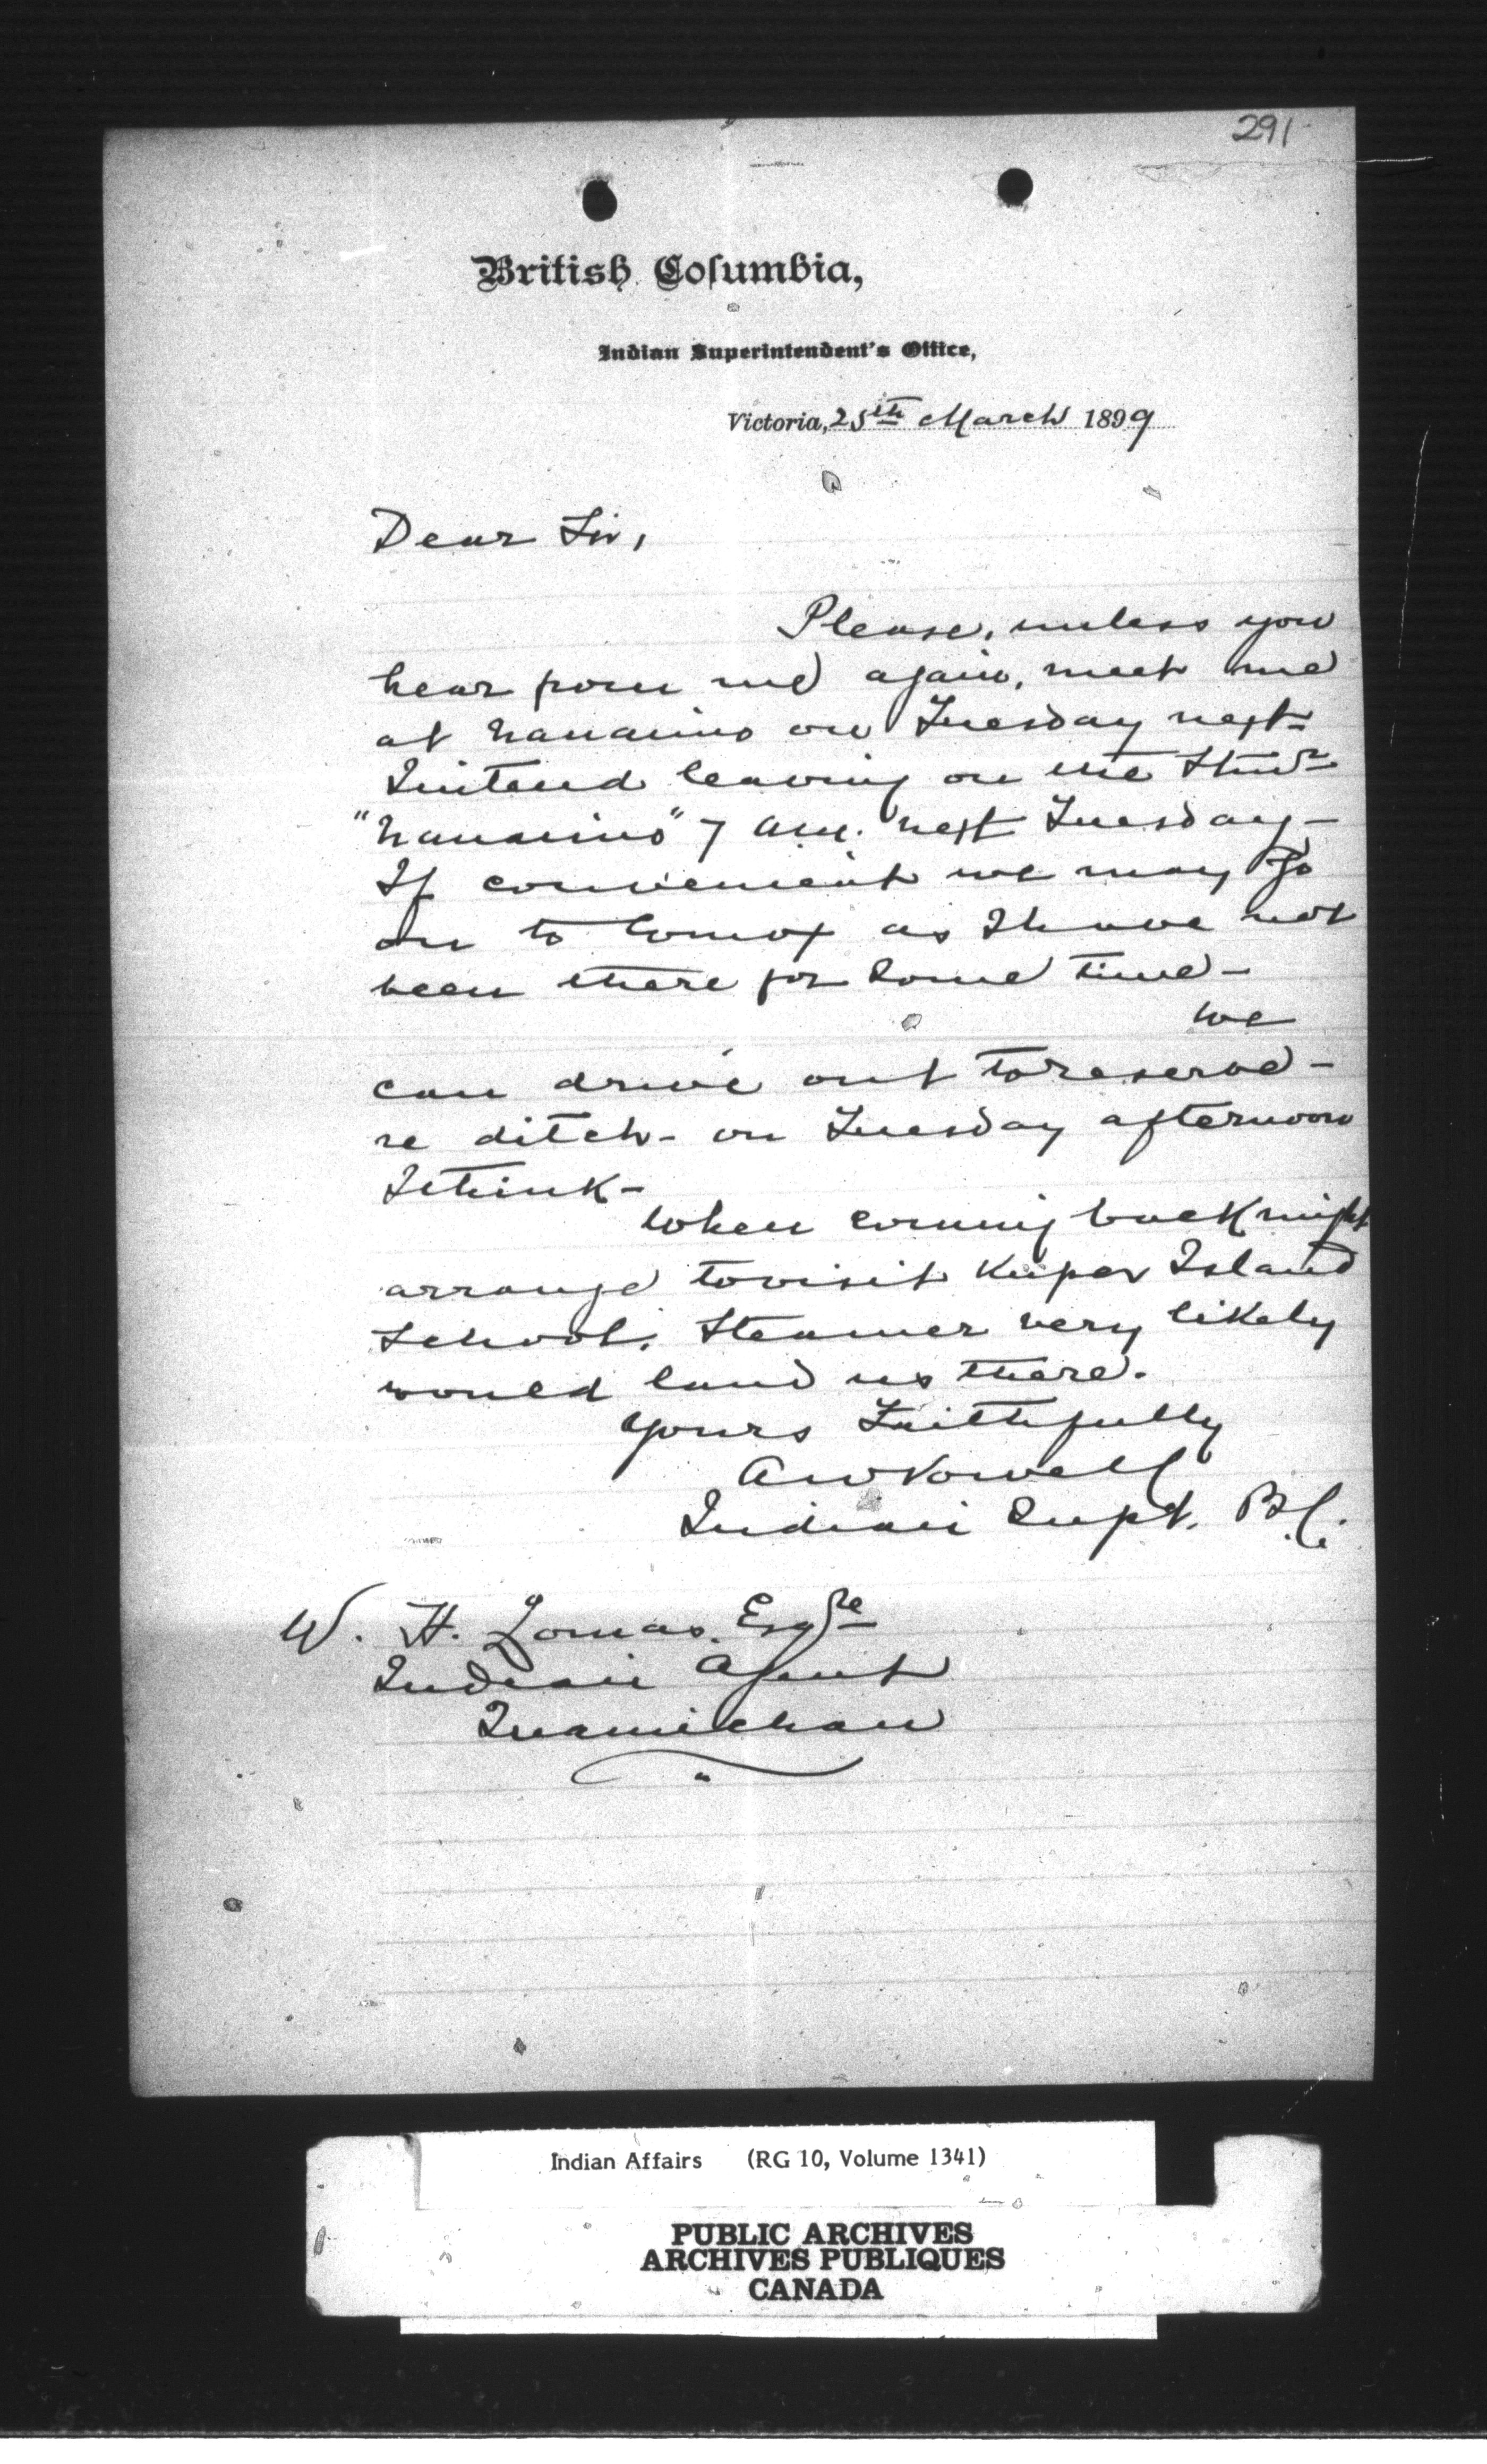 291
British Columbia,
Indian Superintendent's Office,
Victoria, 25th March 1899
Dear Sir,
Please, unless you
hear from me again, meet me
at Nanaimo on Tuesday next-
I intend leaving on the Stmr
"Nanaimo" 7 am. next Tuesday-
If convenient we may go
on to Comox as I have not
been there for some time-
we
can drive out to reserve-
re ditch- on Tuesday afternoon
I think-
When coming back might
arrange to visit Kuper Island
School. Steamer very likely
would land us there.
Yours Faithfully
A W Vowell
Indian Supt. B.C.
W. H. Lomas. Esqre
Indian Agent
Quamichan
Indian Affairs (RG 10, Volume 1341)
PUBLIC ARCHIVES
ARCHIVES PUBLIQUES
CANADA